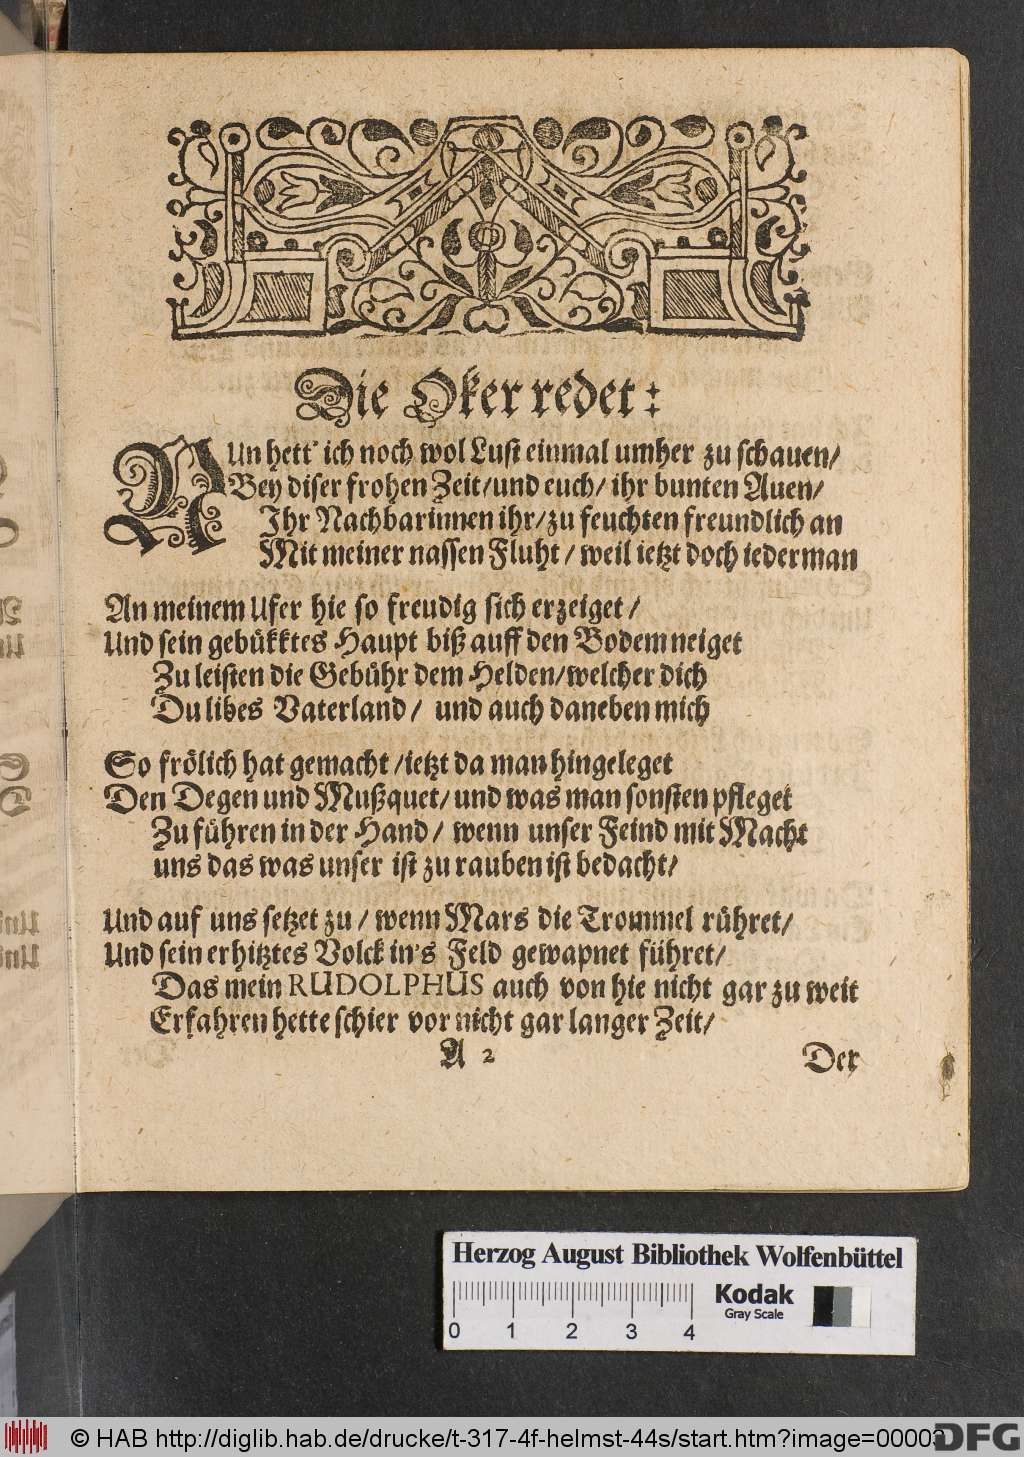 Die Oker redet:
NUn hett' ich noch wol Lust einmal umher zu schauen/
Bey diser frohen Zeit/und euch/ ihr bunten Auen/
Ihr Nachbarinnen ihr/zu feuchten freundlich an
Mit meiner nassen Fluht/ weil ietzt doch iederman
An meinem Ufer hie so freudig sich erzeiget/
Und sein gebükktes Haupt biß auff den Bodem neiget
Zu leisten die Gebühr dem Helden/welcher dich
Du libes Vaterland/ und auch daneben mich
So frölich hat gemacht/ietzt da man hingeleget
Den Degen und Mußquet/und was man sonsten pfleget
Zu führen in der Hand/ wenn unser Feind mit Macht
uns das was unser ist zu rauben ist bedacht/
Und auf uns setzet zu/ wenn Mars die Trommel rühret/
Und sein erhitztes Volck in's Feld gewapnet führet/
Das mein RUDOLPHUS auch von hie nicht gar zu weit
Erfahren hette schier vor nicht gar langer Zeit/
A 2 Der
Herzog August Bibliothek Wolfenbüttel
Kodak
Gray Scale
0 1 2 3 4
© HAB http://diglib.hab.de/drucke/t-317-4f-helmst-44s/start.htm?image=00003
DFG